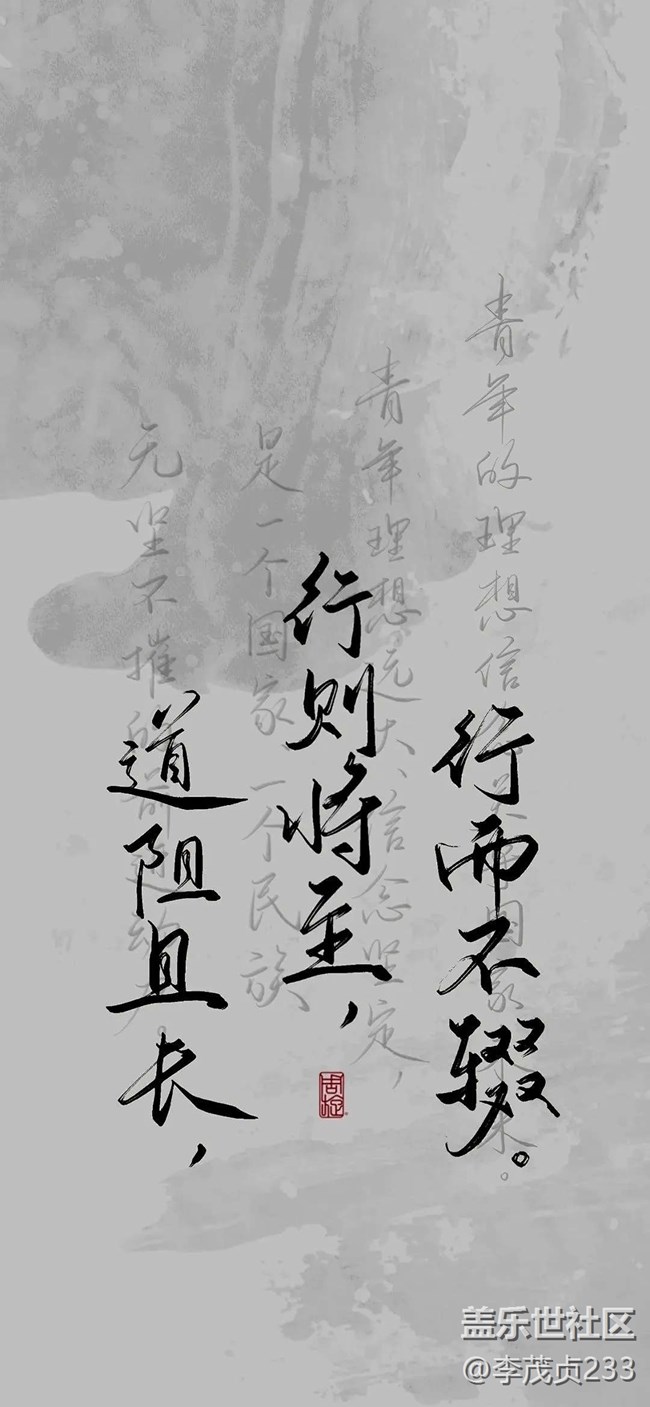 道阻且长，
行则将至，
行而不辍。
青年的理想信念关乎国家未来。
青年理想远大、信念坚定，
是一个国家 一个民族
无坚不摧的前进动力。
盖乐世社区
@李茂贞233